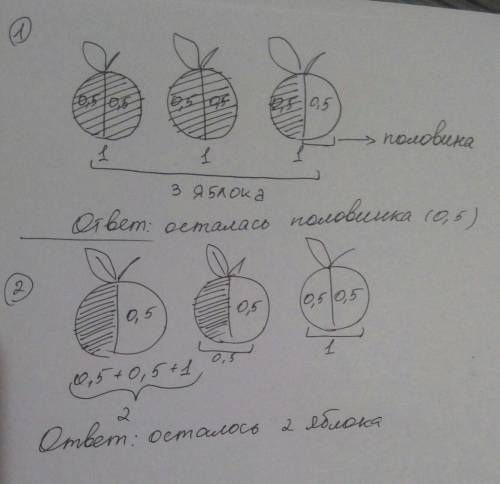 1
0,5 0,5 0,5 0,5 0,5 0,5
1 1 1 половина
3 яблока
Ответ: осталась половинка (0,5)
2
0,5 0,5 0,5 0,5
0,5 1
0,5 + 0,5 + 1
2
Ответ: осталось 2 яблока